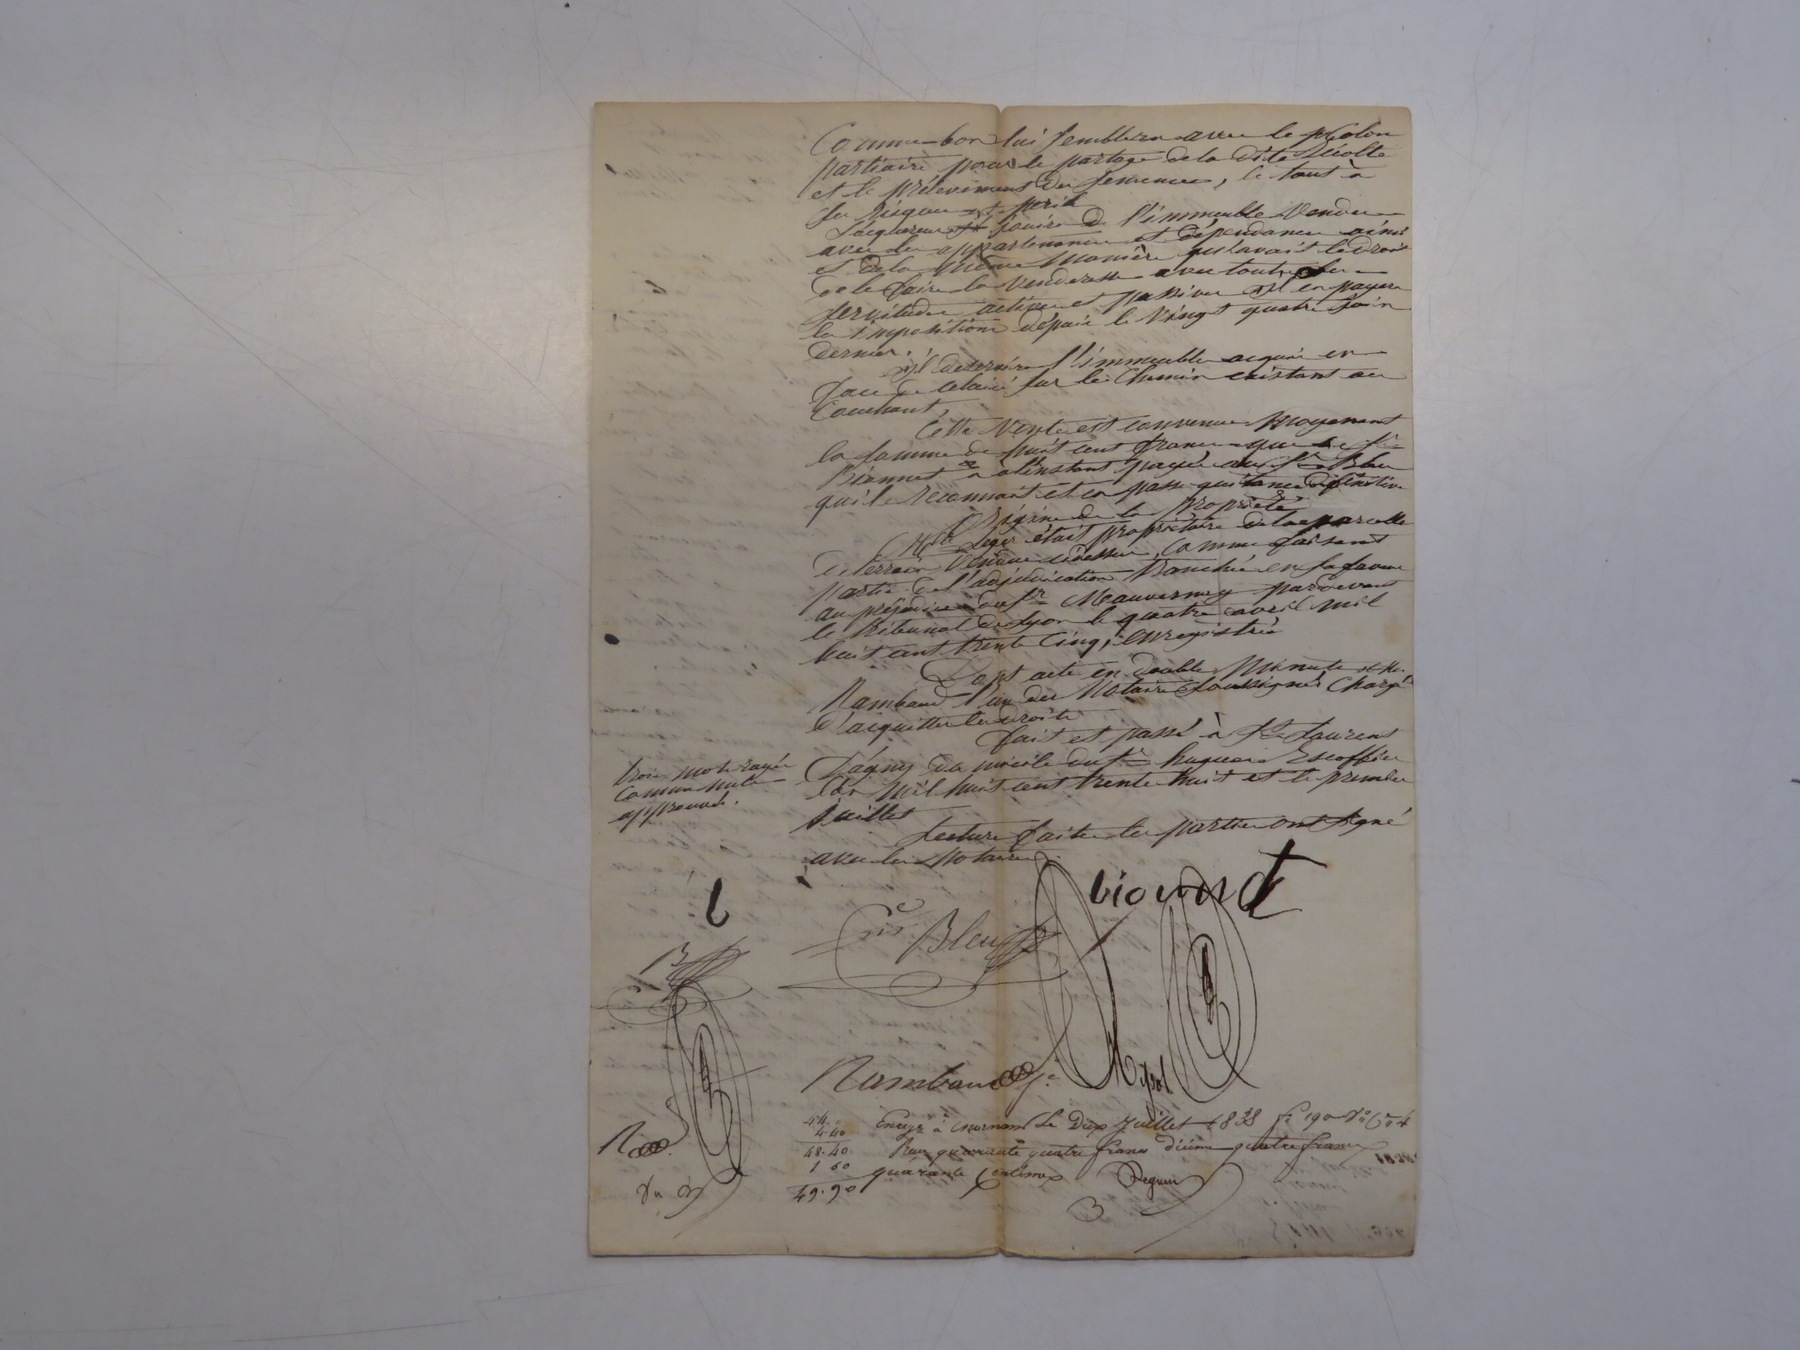 Comme bon lui semblera avec le Colon
partiaire pour le partage de la dite Récolte
et le prélevement des semences, le tout à
ses risques et perils
L'acquereur jouira de l'immeuble Vendu
avec ses appartenances et dépendances ainsi
et de la même Manière qu'avait le droit
de le faire la Venderesse avec toutes ses
servitudes actives et passives Il en payera
les impositions depuis le Vingt quatre Juin
dernier.
Il desservira l'immeuble acquis en
face de celui-ci sur le Chemin existant au
Couchant,
Cette Vente est convenue Moyenant
la somme de huit cent francs que le Sr
Bionnet a à l'instant payée au Sr Bleu
qui le reconnait et en passe quittance définitive
Origine de la Propriété
Mlle Leger était propriétaire de la parcelle
de terrain Vendue cidessus, Comme faisant
partie de l'adjudication tranchée en sa faveur
au préjudice du Sr Mauvernay pardevant
le tribunal de Lyon le quatre avril mil
huit cent trente Cinq, enregistrée
Dont acte en double Minute et Me
Rambaud l'un des Notaires soussignés Chargé
d'acquitter les droits
fait et passé à St Laurent
d'agny domicile du Sr hugues Escoffier
l'an Mil huit cent trente huit et le premier
Juillet
trois mots rayés
Comme nuls
approuvés.
Lecture faite les parties ont signé
avec les Notaires
b
Bleu
B
Rambaud
44.
4.40
48.40
1 50
49.90
Enregé à Mornant Le Dix Juillet 1838 fo 190
Reçu quarante quatre francs dixième quatre francs
quarante Centimes
R